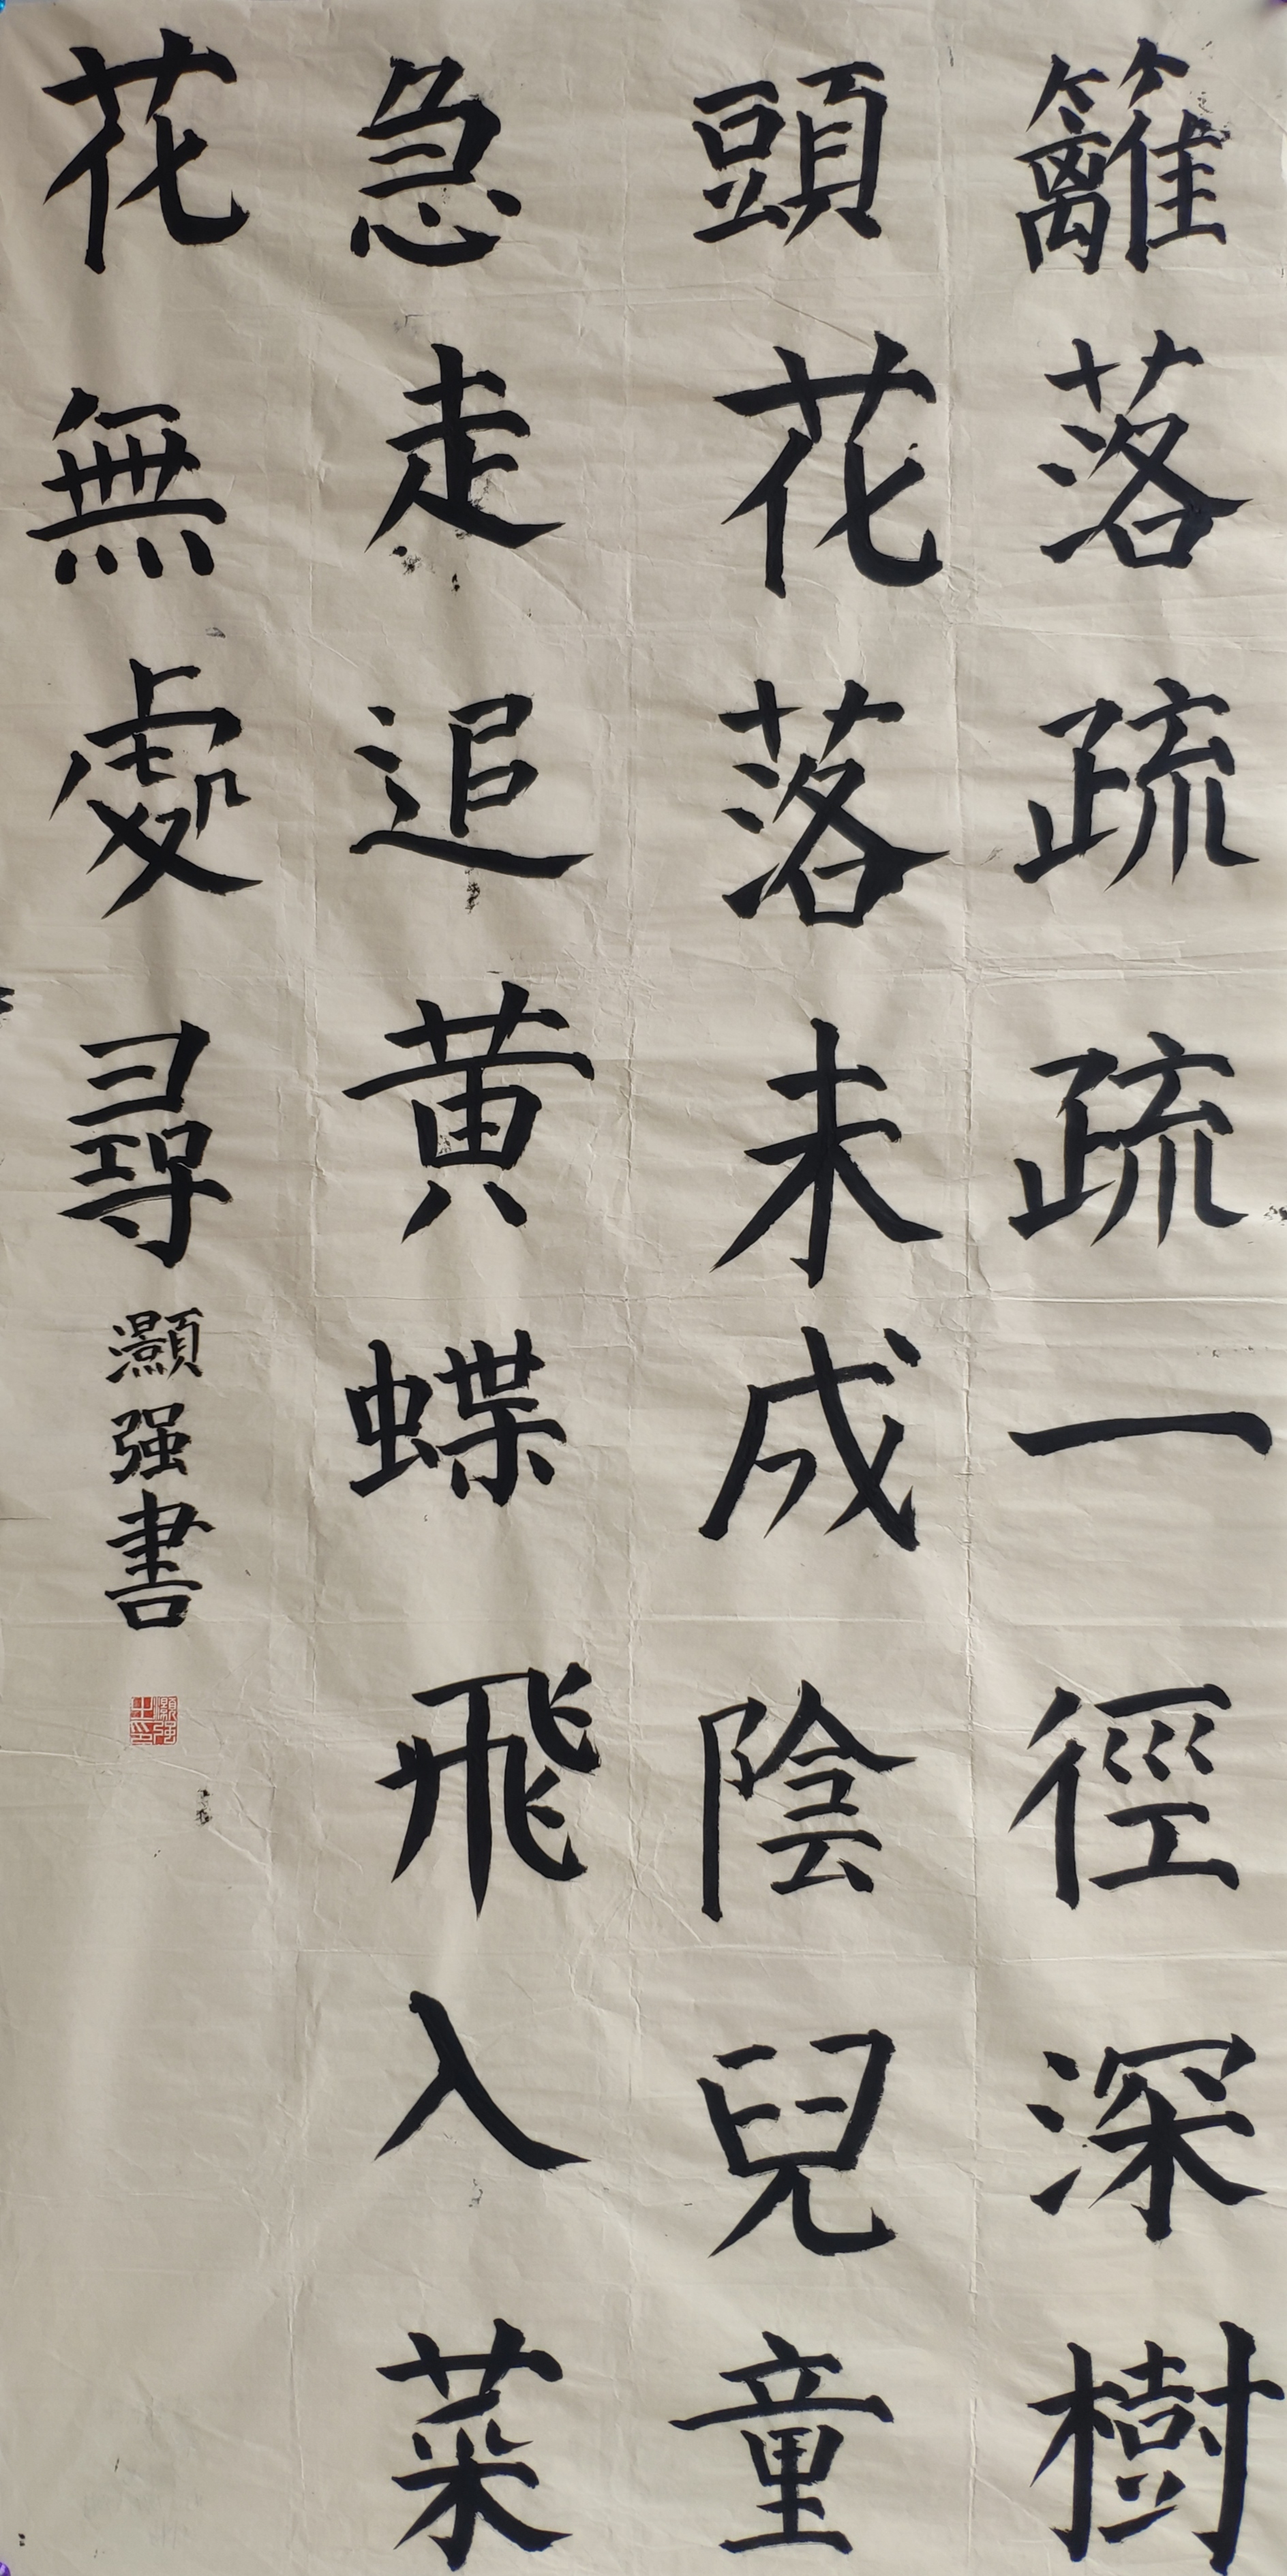 籬落疏疏一徑深樹
頭花落未成陰兒童
急走追黄蝶飛入菜
花無處尋
灝强書
灝强之印